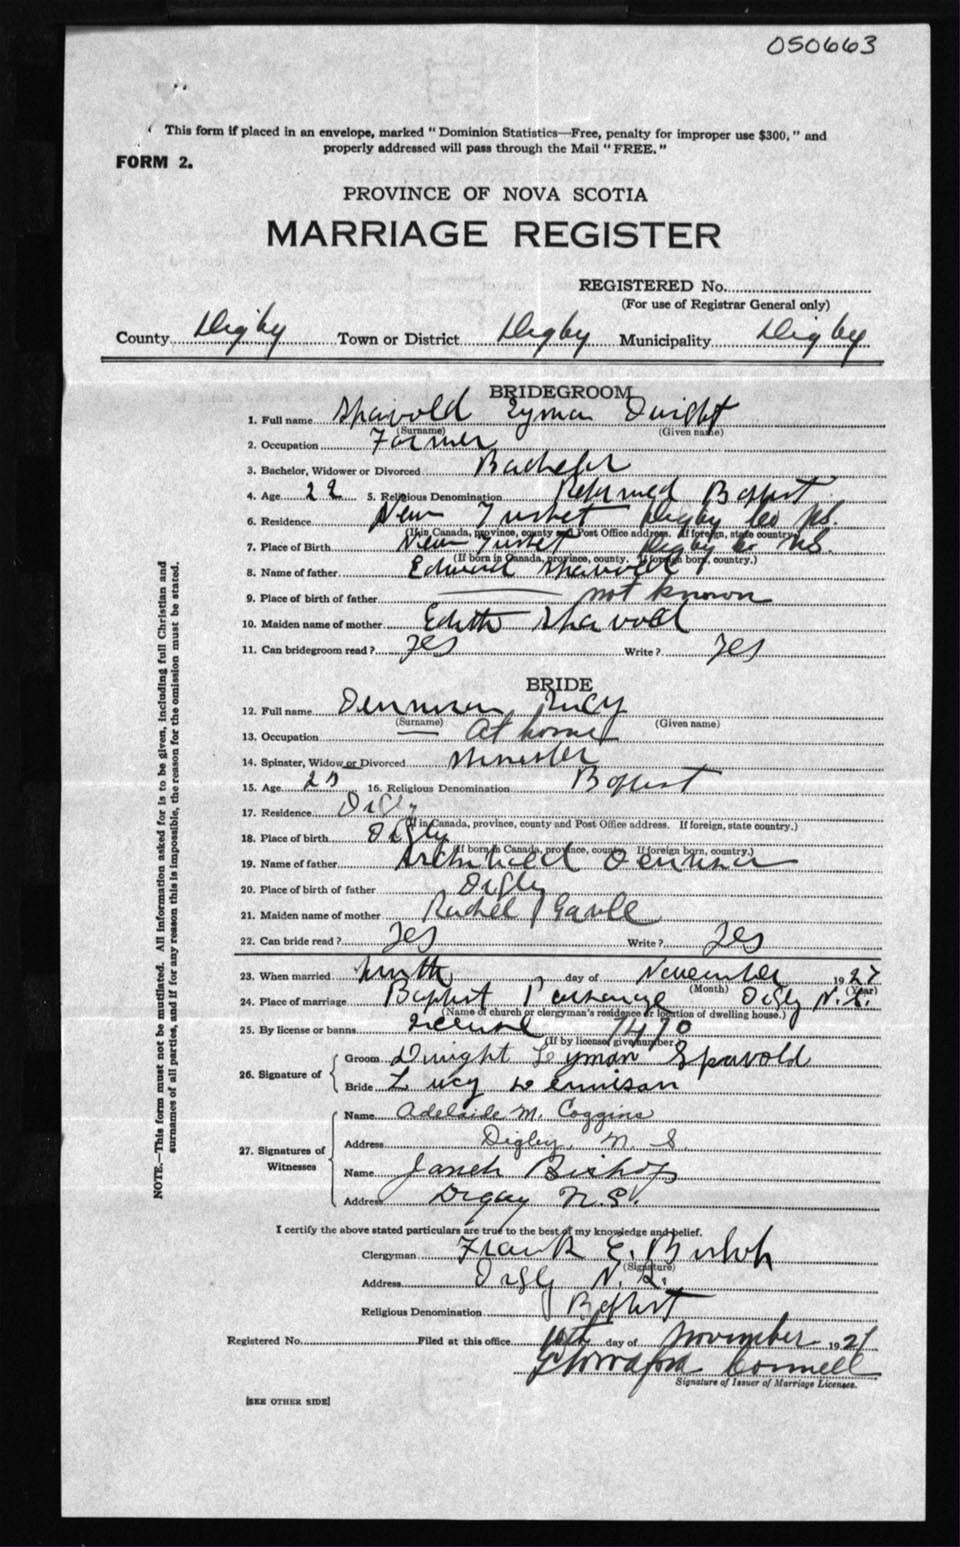 050663
This form if placed in an envelope, marked "Dominion Statistics—Free, penalty for improper use $300," and
properly addressed will pass through the Mail "FREE."
FORM 2.
PROVINCE OF NOVA SCOTIA
MARRIAGE REGISTER
REGISTERED No.
(For use of Registrar General only)
County Digby Town or District Digby Municipality Digby
BRIDEGROOM
1. Full name Spavold Lyman Dwight
(Surname) (Given name)
2. Occupation Farmer
3. Bachelor, Widower or Divorced Bachelor
4. Age 22 5. Religious Denomination Reformed Baptist
6. Residence New Tusket Digby Co NS.
(If in Canada, province, county and Post Office address. If foreign, state country)
7. Place of Birth New Tusket Digby Co NS.
(If born in Canada, province, county. If foreign born, country.)
8. Name of father Edward Spavold
9. Place of birth of father not known
10. Maiden name of mother Edith Spavold
11. Can bridegroom read? Yes Write? Yes
BRIDE
12. Full name Dennison Lucy
(Surname) (Given name)
13. Occupation At home
14. Spinster, Widow or Divorced Spinster
15. Age 16. Religious Denomination Baptist
17. Residence Digby
(If in Canada, province, county and Post Office address. If foreign, state country.)
18. Place of birth Digby
(If born in Canada, province, county. If foreign born, country.)
19. Name of father Archibald Dennison
20. Place of birth of father Digby
21. Maiden name of mother Rachel
22. Can bride read? Yes Write? Yes
23. When married Ninth day of November 1927
(Month) (Year)
24. Place of marriage Baptist Parsonage Digby N.S.
(Name of church or clergyman's residence or location of dwelling house.)
25. By license or banns License 1490
(If by license, give number)
26. Signature of
Groom Dwight Lyman Spavold
Bride Lucy Dennison
27. Signatures of Witnesses
Name Adelaide M. Coggins
Address Digby, N. S.
Name Bishop
Address Digby N.S.
I certify the above stated particulars are true to the best of my knowledge and belief.
Clergyman Frank E. Bishop
(Signature)
Address Digby N.S.
Religious Denomination Baptist
Registered No. Filed at this office 10th day of November 1927
Connell
Signature of Issuer of Marriage Licenses.
[SEE OTHER SIDE]
NOTE.—This form must not be mutilated. All information asked for is to be given, including full Christian and
surnames of all parties, and if for any reason this is impossible, the reason for the omission must be stated.